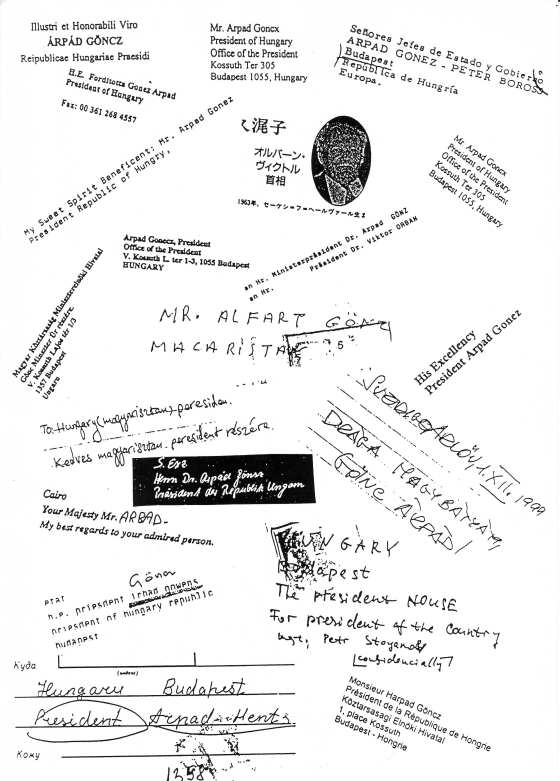 Illustri et Honorabili Viro
ÁRPÁD GÖNCZ
Reipublicae Hungariae Praesidi
Mr. Arpad Goncx
President of Hungary
Office of the President
Kossuth Ter 305
Budapest 1055, Hungary
Señores Jefes de Estado y Gobierno
ARPAD GONEZ - PETER BOROSS
Budapest
República de Hungría
Europa.
H.E. Forditotta Gonez Arpad
President of Hungary
Fax: 00 361 268 4557
My Sweet Spirit Beneficent: Mr. Arpad Gonez
President Republic of Hungry,
オルバーン・
ヴィクトル
首相
1963年、セーケシュフェヘールヴァール生ま
Mr. Arpad Goncx
President of Hungary
Office of the President
Kossuth Ter 305
Budapest 1055, Hungary
Arpad Gonecz, President
Office of the President
V. Kossuth L. ter 1-3, 1055 Budapest
HUNGARY
an Hr. Ministerpräsident Dr. Arpad GÖNZ
an Hr. Präsident Dr. Viktor ORBAN
Magyar Köztársaság Miniszterelnöki Hivatal
Göcz Miniszter Úr részére.
V. Kossuth Lajos tér 1/3
1357 Budapest
Ungarn
MR. ALFART GÖNZ
MACARISTAN
5
His Excellency
President Arpad Goncz
To: Hungary (magyarisztan) paresiden.
Kedves magyarisztan. paresident részére.
S. Exz
Herrn Dr. Arpád Gönsz
Präsident der Republik Ungarn
1. XII. 1999
DRAGA MAGYBATYAM
GÖNC ÁRPÁD!
Cairo
Your Majesty Mr. ARPAD-
My best regards to your admired person.
HUNGARY
Budapest
The président HOUSE
For président of the Country
mge, Petr Stoyanov
(considencially)
Göna
etat
h.e. priesident irhad
priesident of hungary republic
budapest
Куда
Hungaru Budapest
President Arpad-Hents
Кому
1358
Monsieur Harpad Göncz
Président de la République de Hongrie
Köztarsasagi Elnöki Hivatal
1. place Kossuth
Budapest - Hongrie